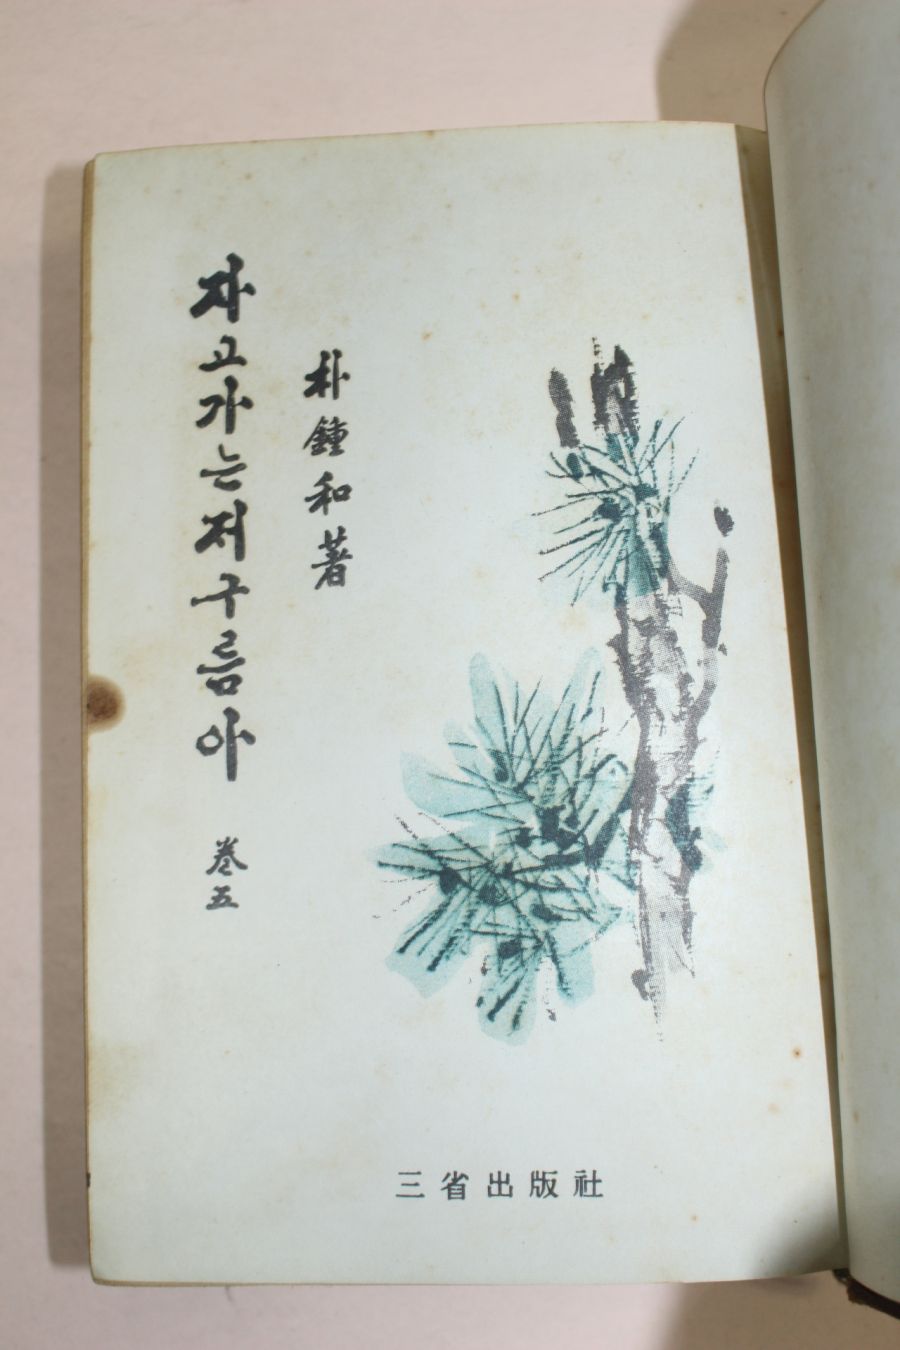 자고가는저구름아 卷五
朴鍾和著
三省出版社